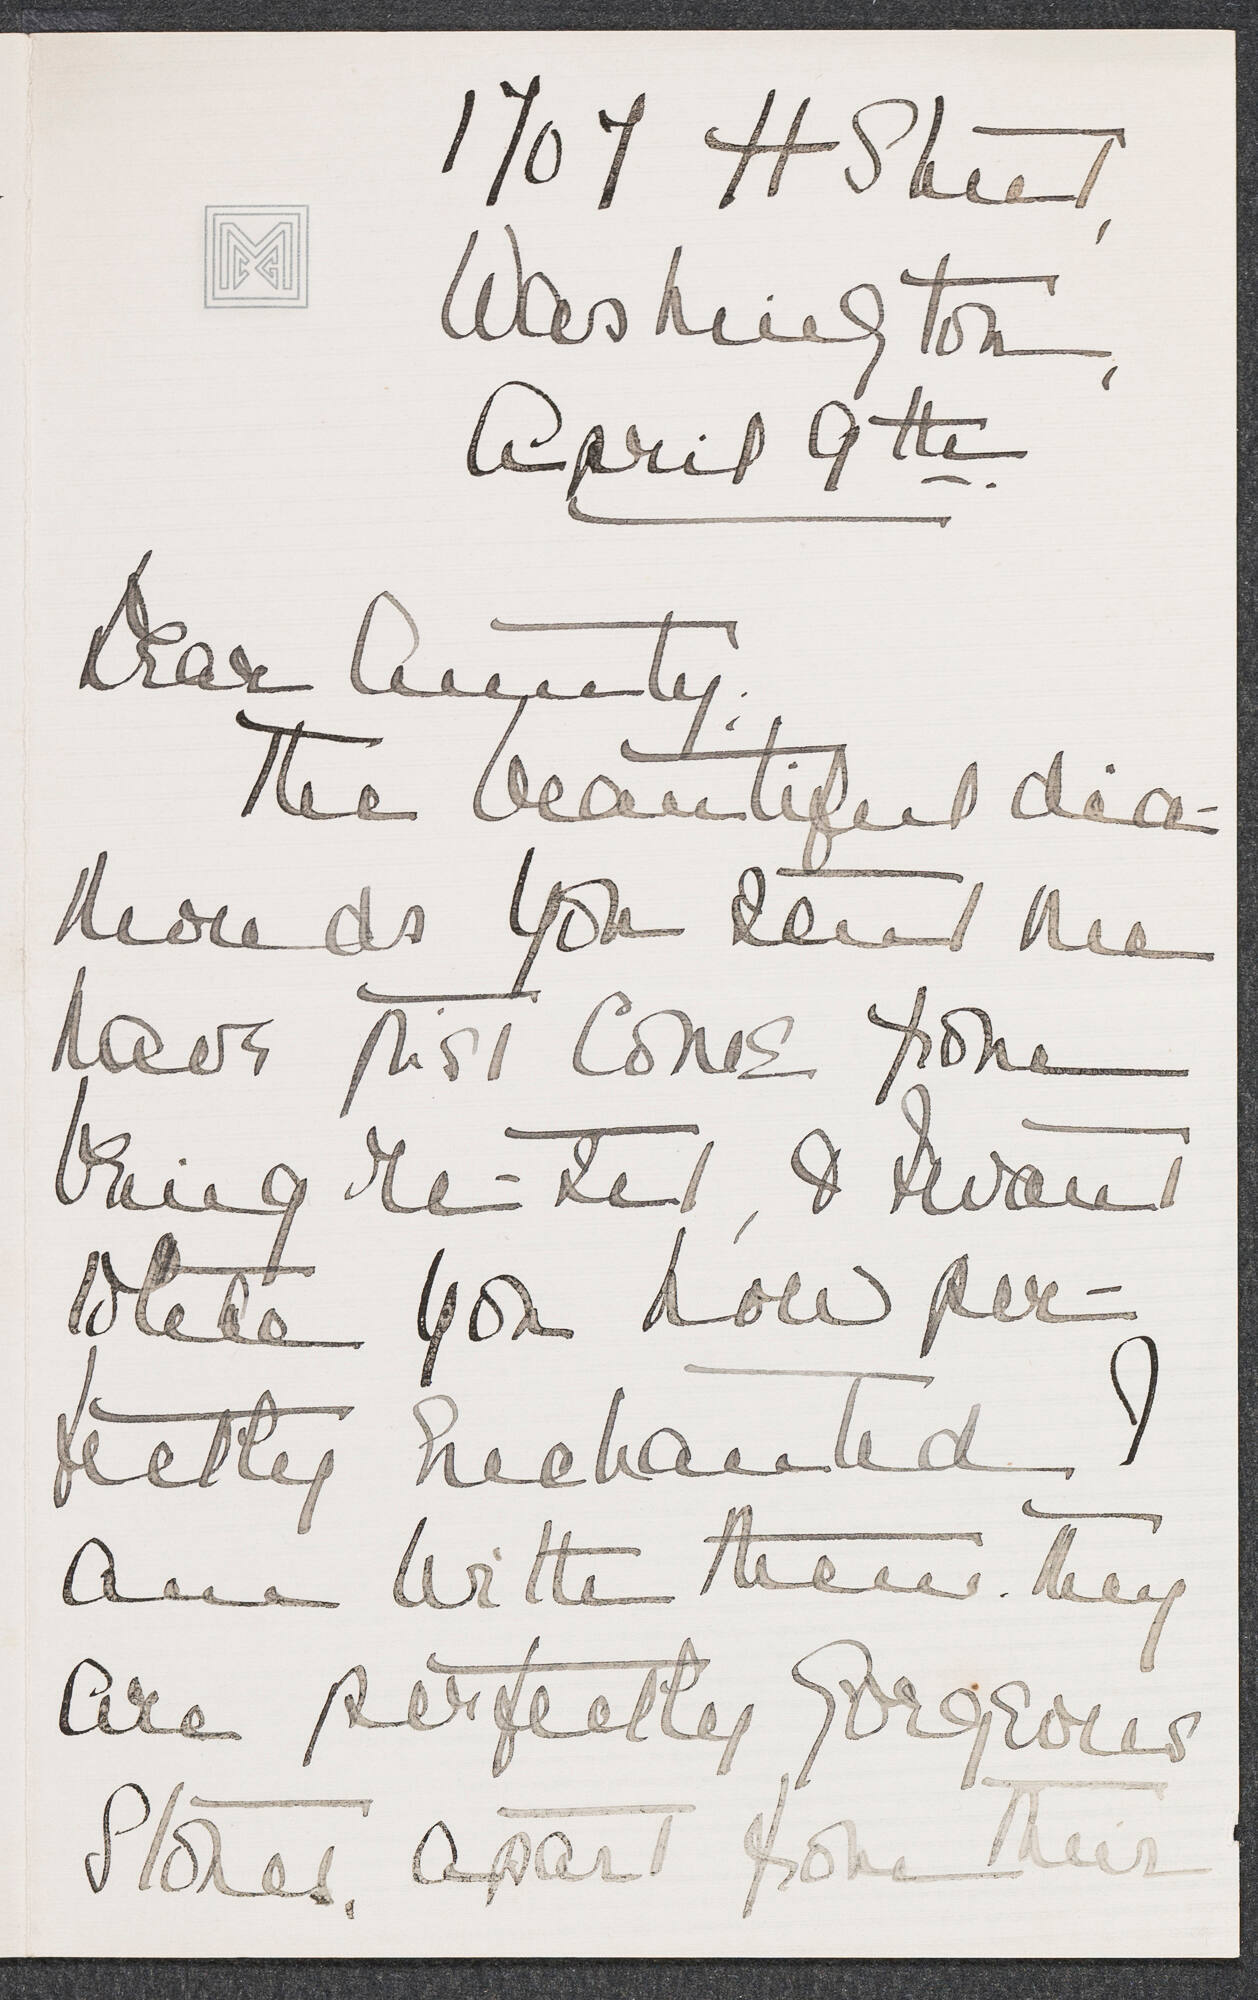 1707 H Street,
Washington,
April 9th.
Dear Aunty:
The beautiful dia-
monds you sent me
have just come from
being re-set, & I want
to tell you how per-
fectly enchanted I
am with them. They
are perfectly gorgeous
stones, apart from their